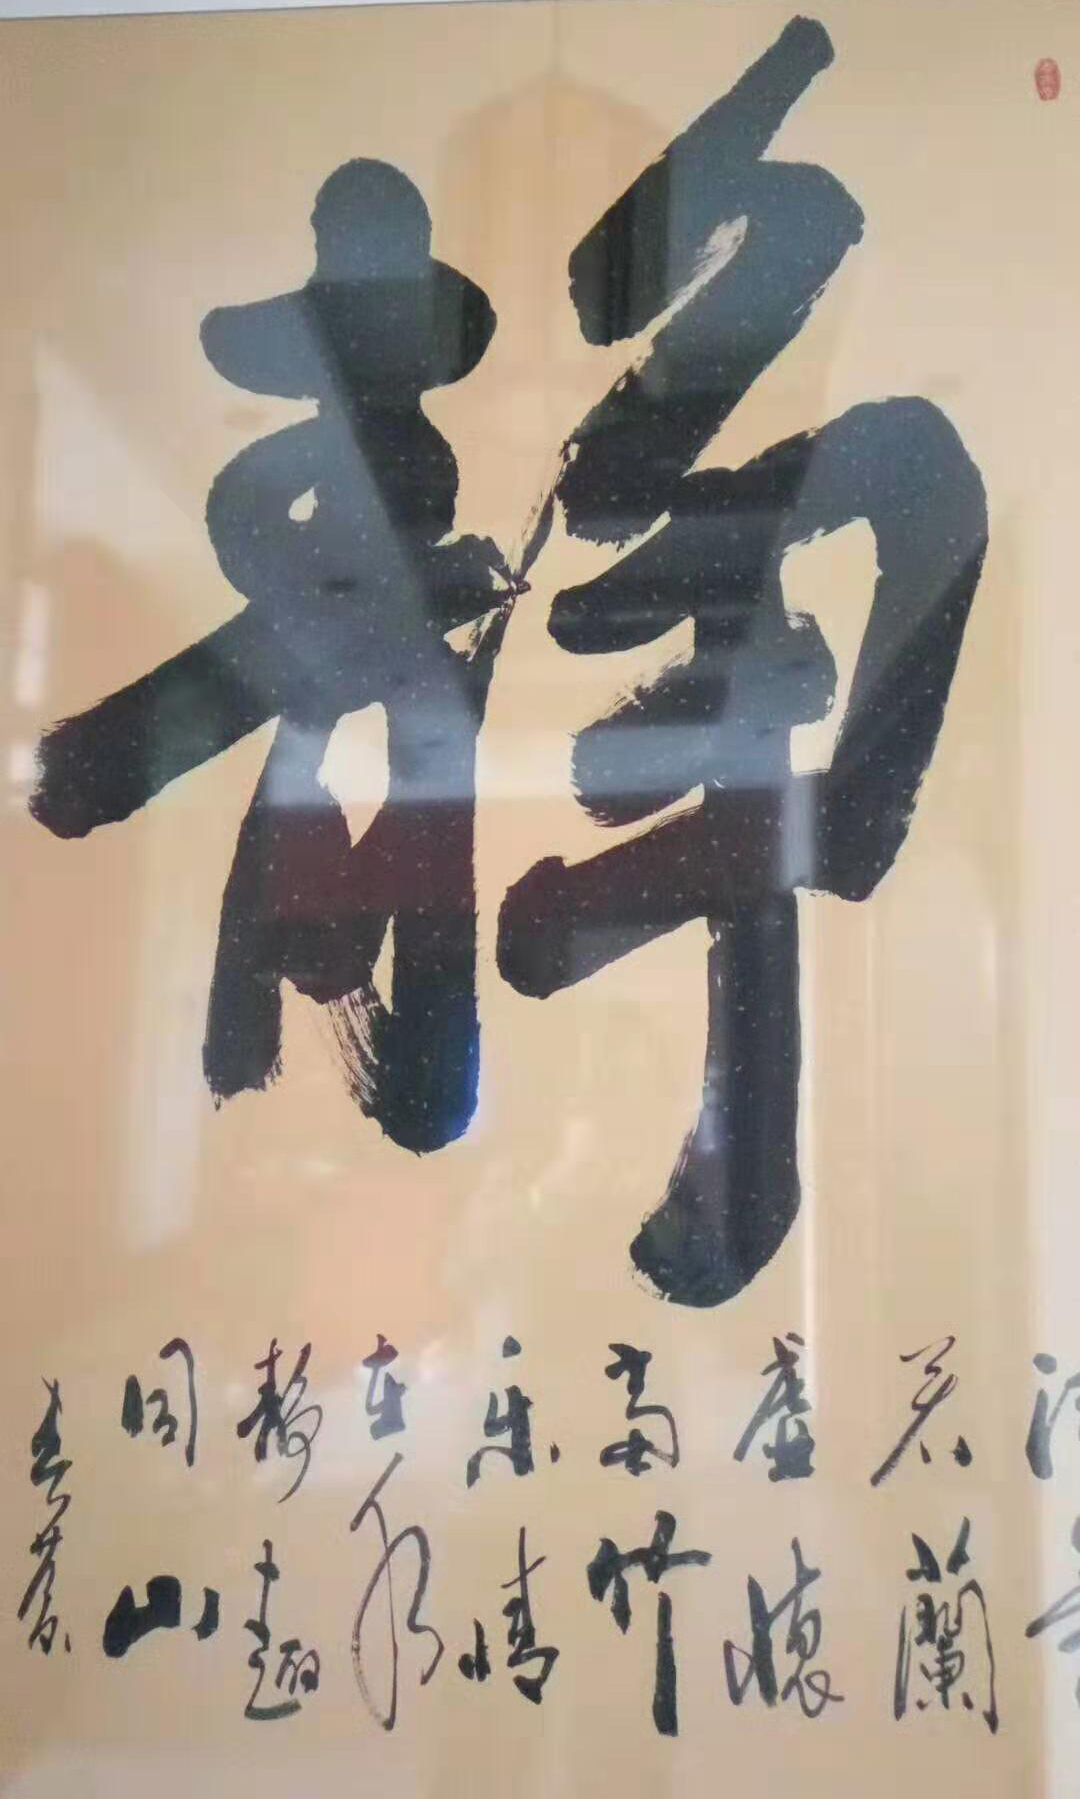 静
若蘭
虚懷
當竹
乐情
在水
静趣
同山